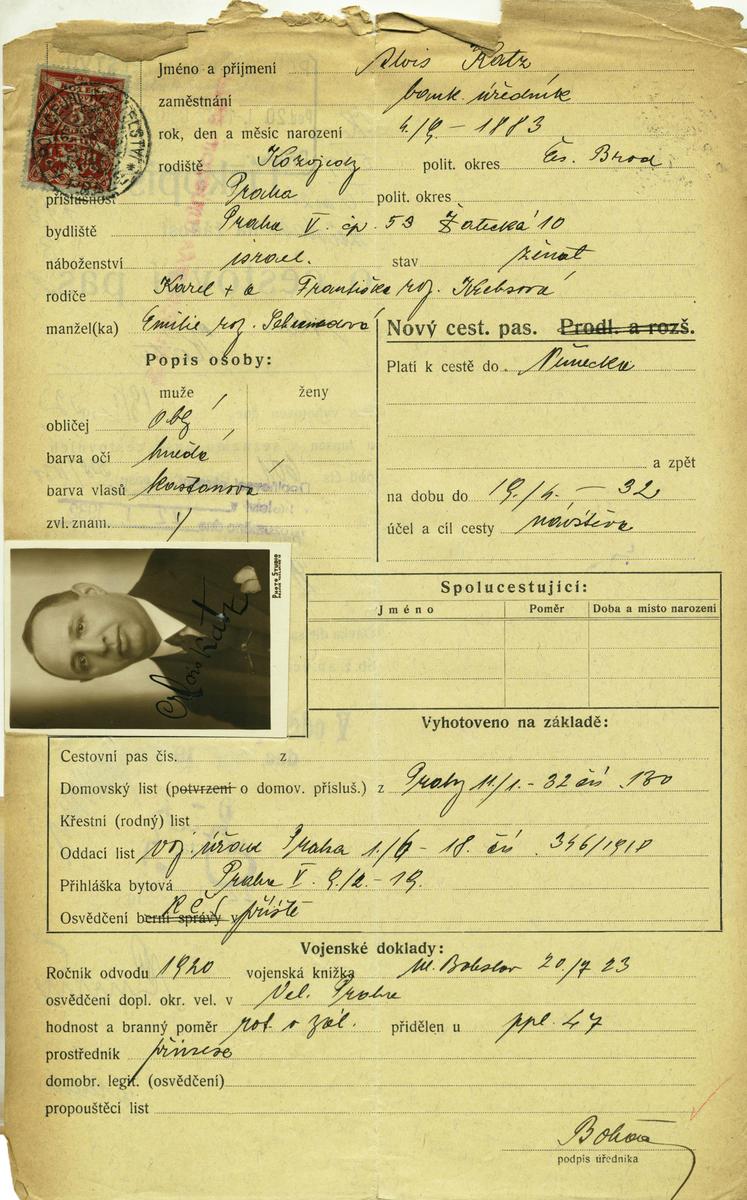 Jméno a příjmení Alois Katz
zaměstnání bank. úředník
rok, den a měsíc narození 4./9. – 1883
rodiště Kozojedy polit. okres Čs. Brod
příslušnost Praha polit. okres
bydliště Praha V. čp. 53 Žatecká 10
náboženství israel. stav ženat
rodiče Karel + a Františka roj. Krebsová
manžel(ka) Emilie roz.
Nový cest. pas. Prodl. a rozš.
Platí k cestě do Německa
a zpět
na dobu do 19./4. – 32
účel a cíl cesty návštěva
Popis osoby:
muže ženy
obličej obl.
barva očí hnědá
barva vlasů kaštanová
zvl. znam.
PHOTO STUDIO
Alois Katz
Spolucestující:
Jméno Poměr Doba a místo narození
Vyhotoveno na základě:
Cestovní pas čís. z
Domovský list (potvrzení o domov. přísluš.) z Prahy 11/1. – 32 čís 130
Křestní (rodný) list
Oddací list voj. úřad Praha 1./6 – 18. čís. 346/1918
Přihláška bytová Praha V. 9./2. – 19.
Osvědčení berní správy v příště
Vojenské doklady:
Ročník odvodu 1920 vojenská knížka Ml. Boleslav 20./7 23
osvědčení dopl. okr. vel. v Vel. Praha
hodnost a branný poměr rot. v zál. přidělen u ppl. 47
prostředník přinese
domobr. legit. (osvědčení)
propouštěcí list
podpis úředníka